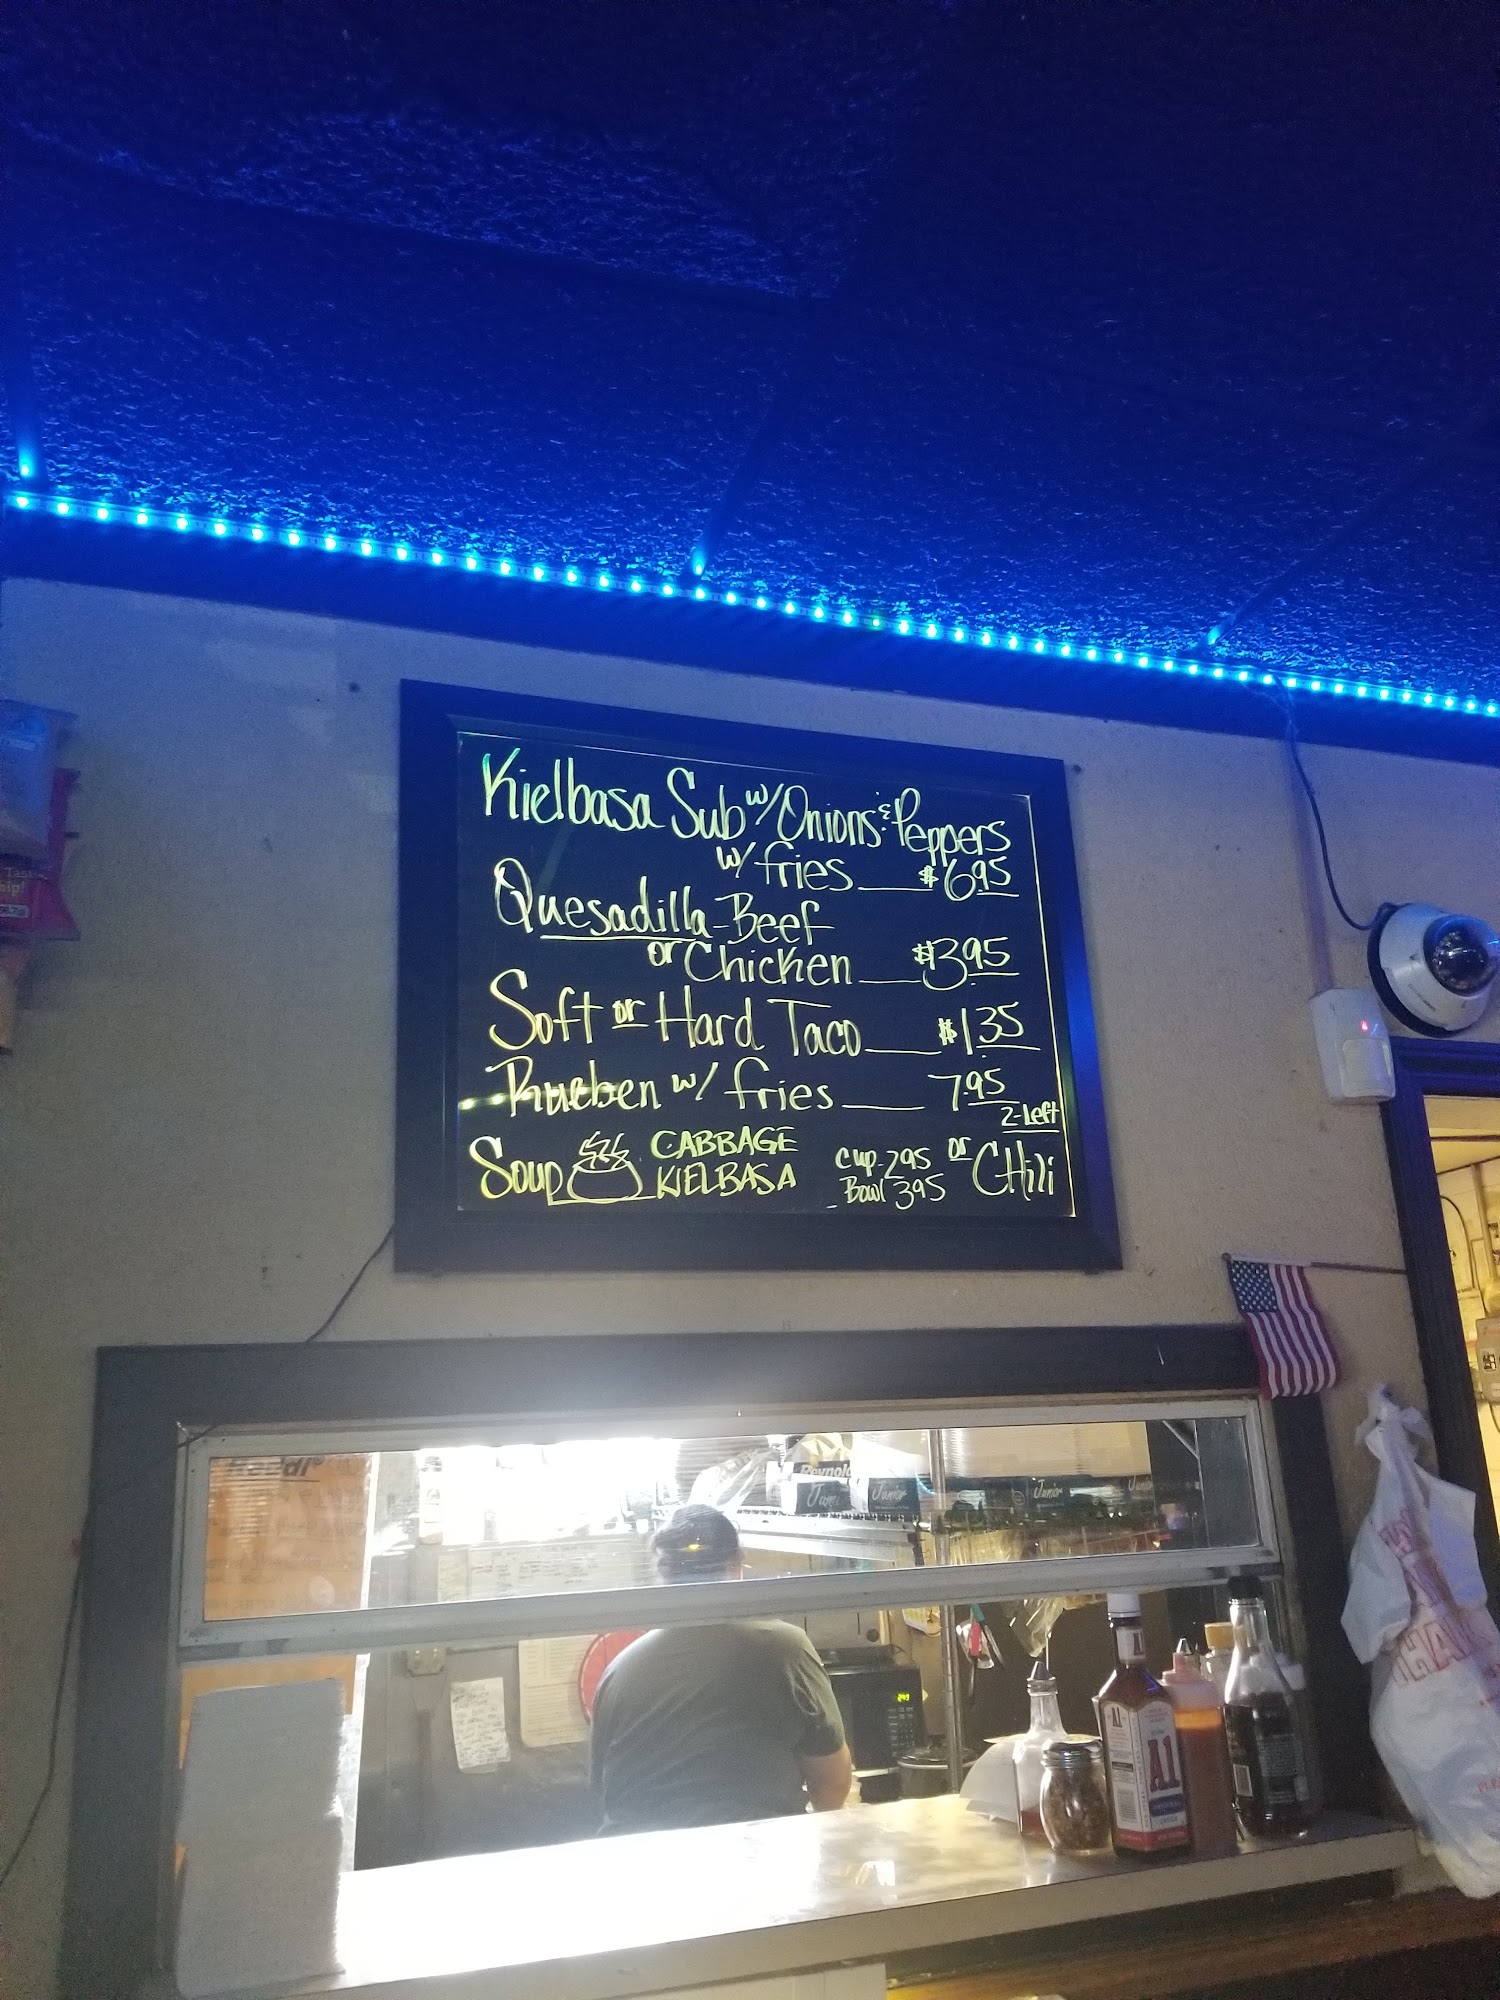 Kielbasa Sub w/ Onions & Peppers
w/ fries $6.95
Quesadilla - Beef
or Chicken $3.95
Soft or Hard Taco $1.35
Rueben w/ fries 7.95
2-Left
Soup CABBAGE KIELBASA Cup-2.95 Bowl 3.95 or CHili
Reynolds
Junior
Junior
Junior
A1
A1
THANK